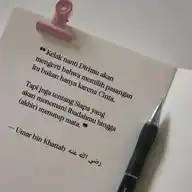 "Kelak nanti Dirimu akan
mengerti bahwa memilih pasangan
itu bukan hanya karena Cinta.
Tapi juga tentang Siapa yang
akan menemani Ibadahmu hingga
(akhir) menutup mata."
— Umar bin Khattab رضي الله عنه